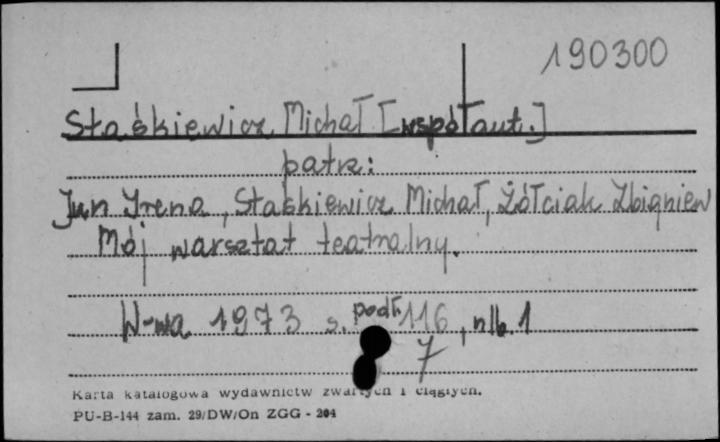 190300
Staśkiewicz Michał [współaut.]
patrz:
Jun Irena, Staśkiewicz Michał, Żółciak Zbigniew
Mój warsztat teatralny.
W-wa 1973 s. podł. 116, nlb. 1
7
Karta katalogowa wydawnictw zwartych i ciągłych.
PU-B-144 zam. 29/DW/On ZGG - 204